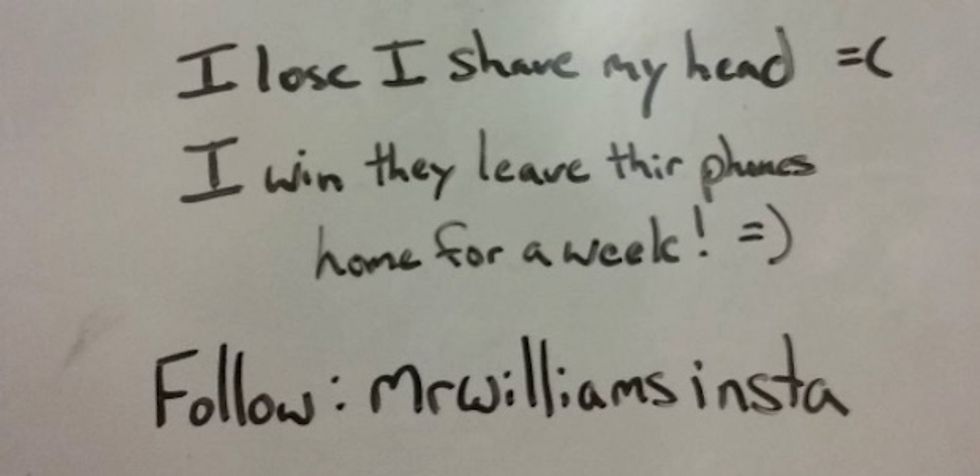 I lose I shave my head =(
I win they leave thir phones
home for a week! =)
Follow: Mrwilliamsinsta